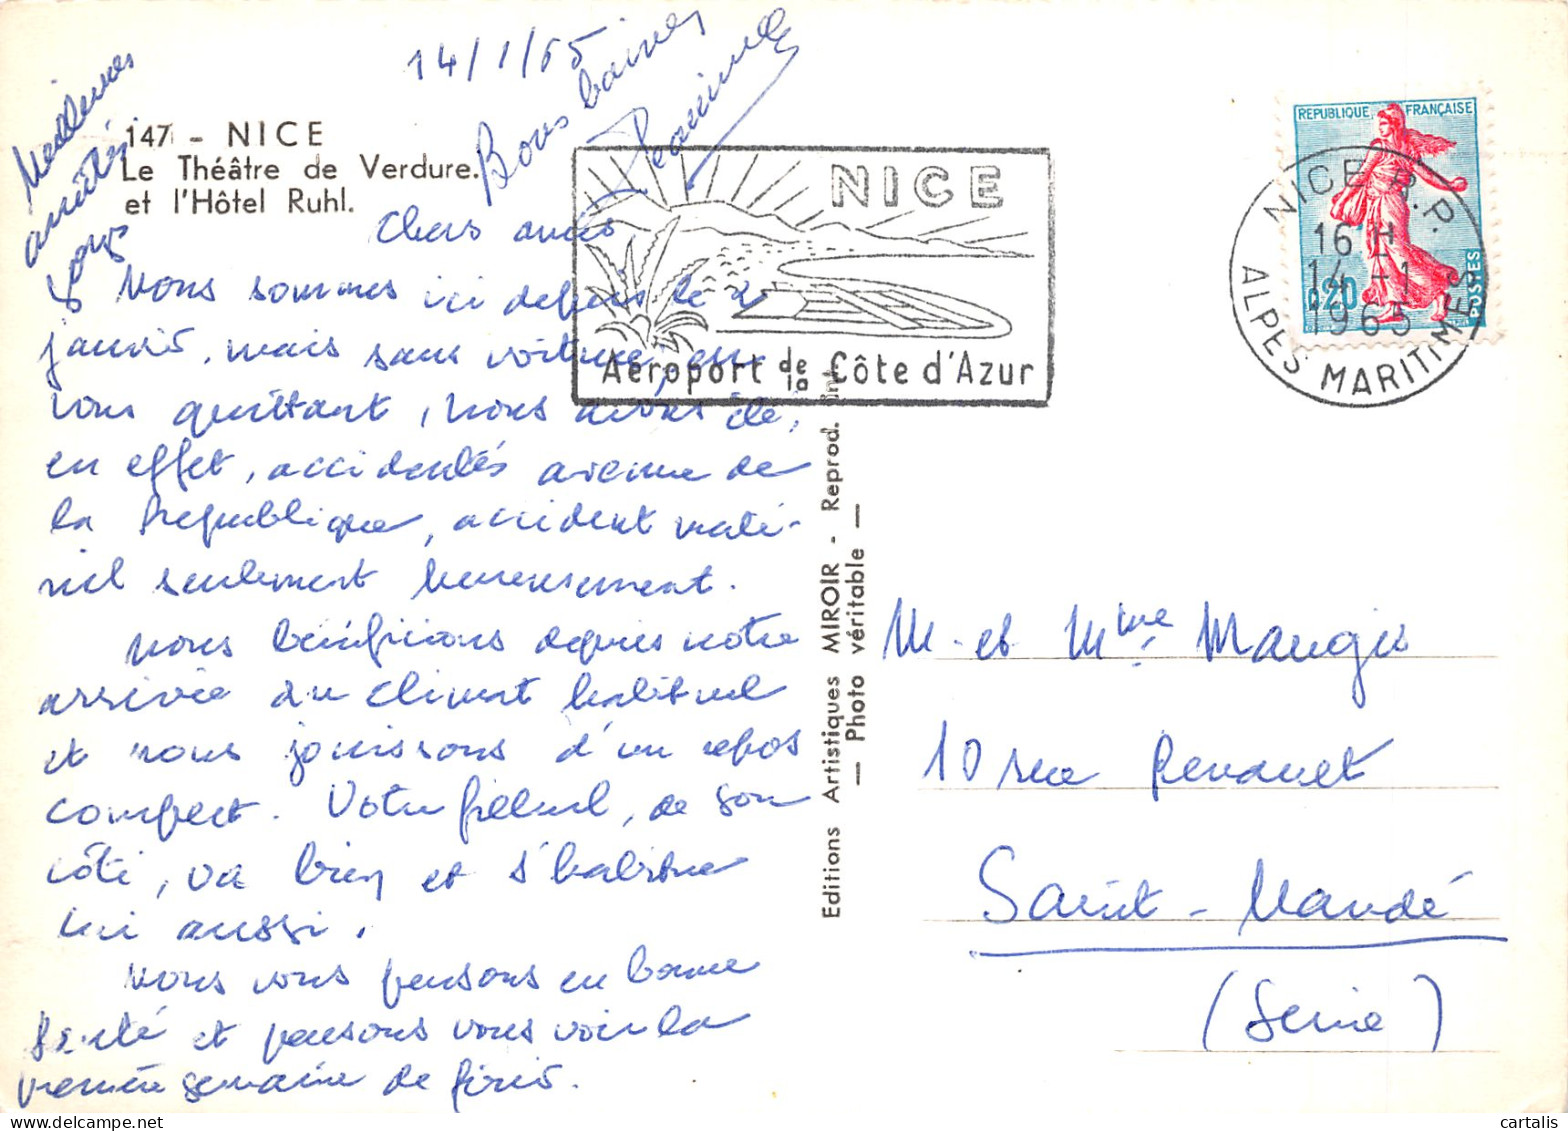 14/1/65
147 - NICE
Le Théâtre de Verdure.
et l'Hôtel Ruhl.
Chers amis
Nous sommes ici depuis le 2
janvier, mais sans voiture, en
vous quittant, nous avons été,
en effet, accidentés avenue de
la République, accident maté-
riel seulement heureusement.
Nous bénéficions depuis notre
arrivée du climat habituel
et nous jouissons d'un repos
complet. Votre filleul, de son
côté, va bien et s'habitue
lui aussi.
Nous vous pensons en bonne
santé et pensons vous voir la
première semaine de février.
Meilleures
amitiés
Bons baisers
Jeannine
NICE
Aéroport de la Côte d'Azur
REPUBLIQUE FRANÇAISE
0,20
POSTES
NICE R.P.
16 H
14 - 1
1965
ALPES MARITIMES
Editions Artistiques MIROIR - Reprod. int.
— Photo véritable —
M. et Mme Maugis
10 rue
Saint-Mandé
(Seine)
cartalis